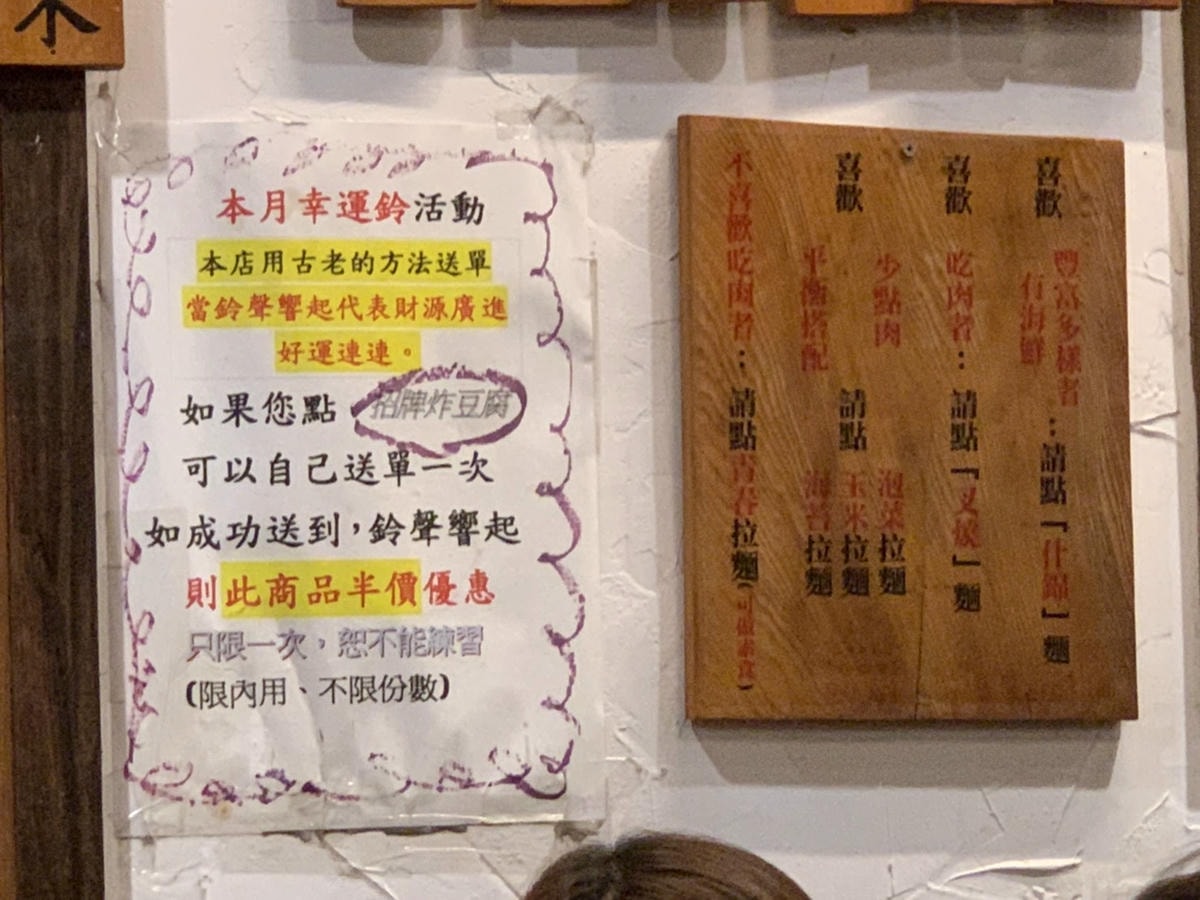 本月幸運鈴活動
本店用古老的方法送單
當鈴聲響起代表財源廣進
好運連連。
如果您點 招牌炸豆腐
可以自己送單一次
如成功送到,鈴聲響起
則此商品半價優惠
只限一次,恕不能練習
(限內用、不限份數)
喜歡 豐富多樣者 有海鮮 : 請點「什錦」麵
喜歡 吃肉者: 請點「叉燒」麵
喜歡 少點肉 平衡搭配 請點 泡菜拉麵 玉米拉麵 海苔拉麵
不喜歡吃肉者: 請點青春拉麵(可做素食)